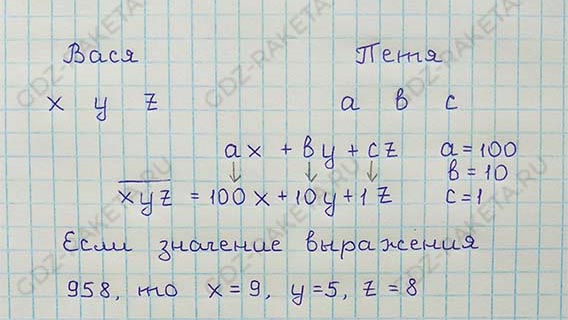 Вася Петя
x y z a в c
ax + вy + cz a = 100
в = 10
xyz = 100x + 10y + 1z c = 1
Если значение выражения
958, то x = 9, y = 5, z = 8
GDZ-RAKETA.RU